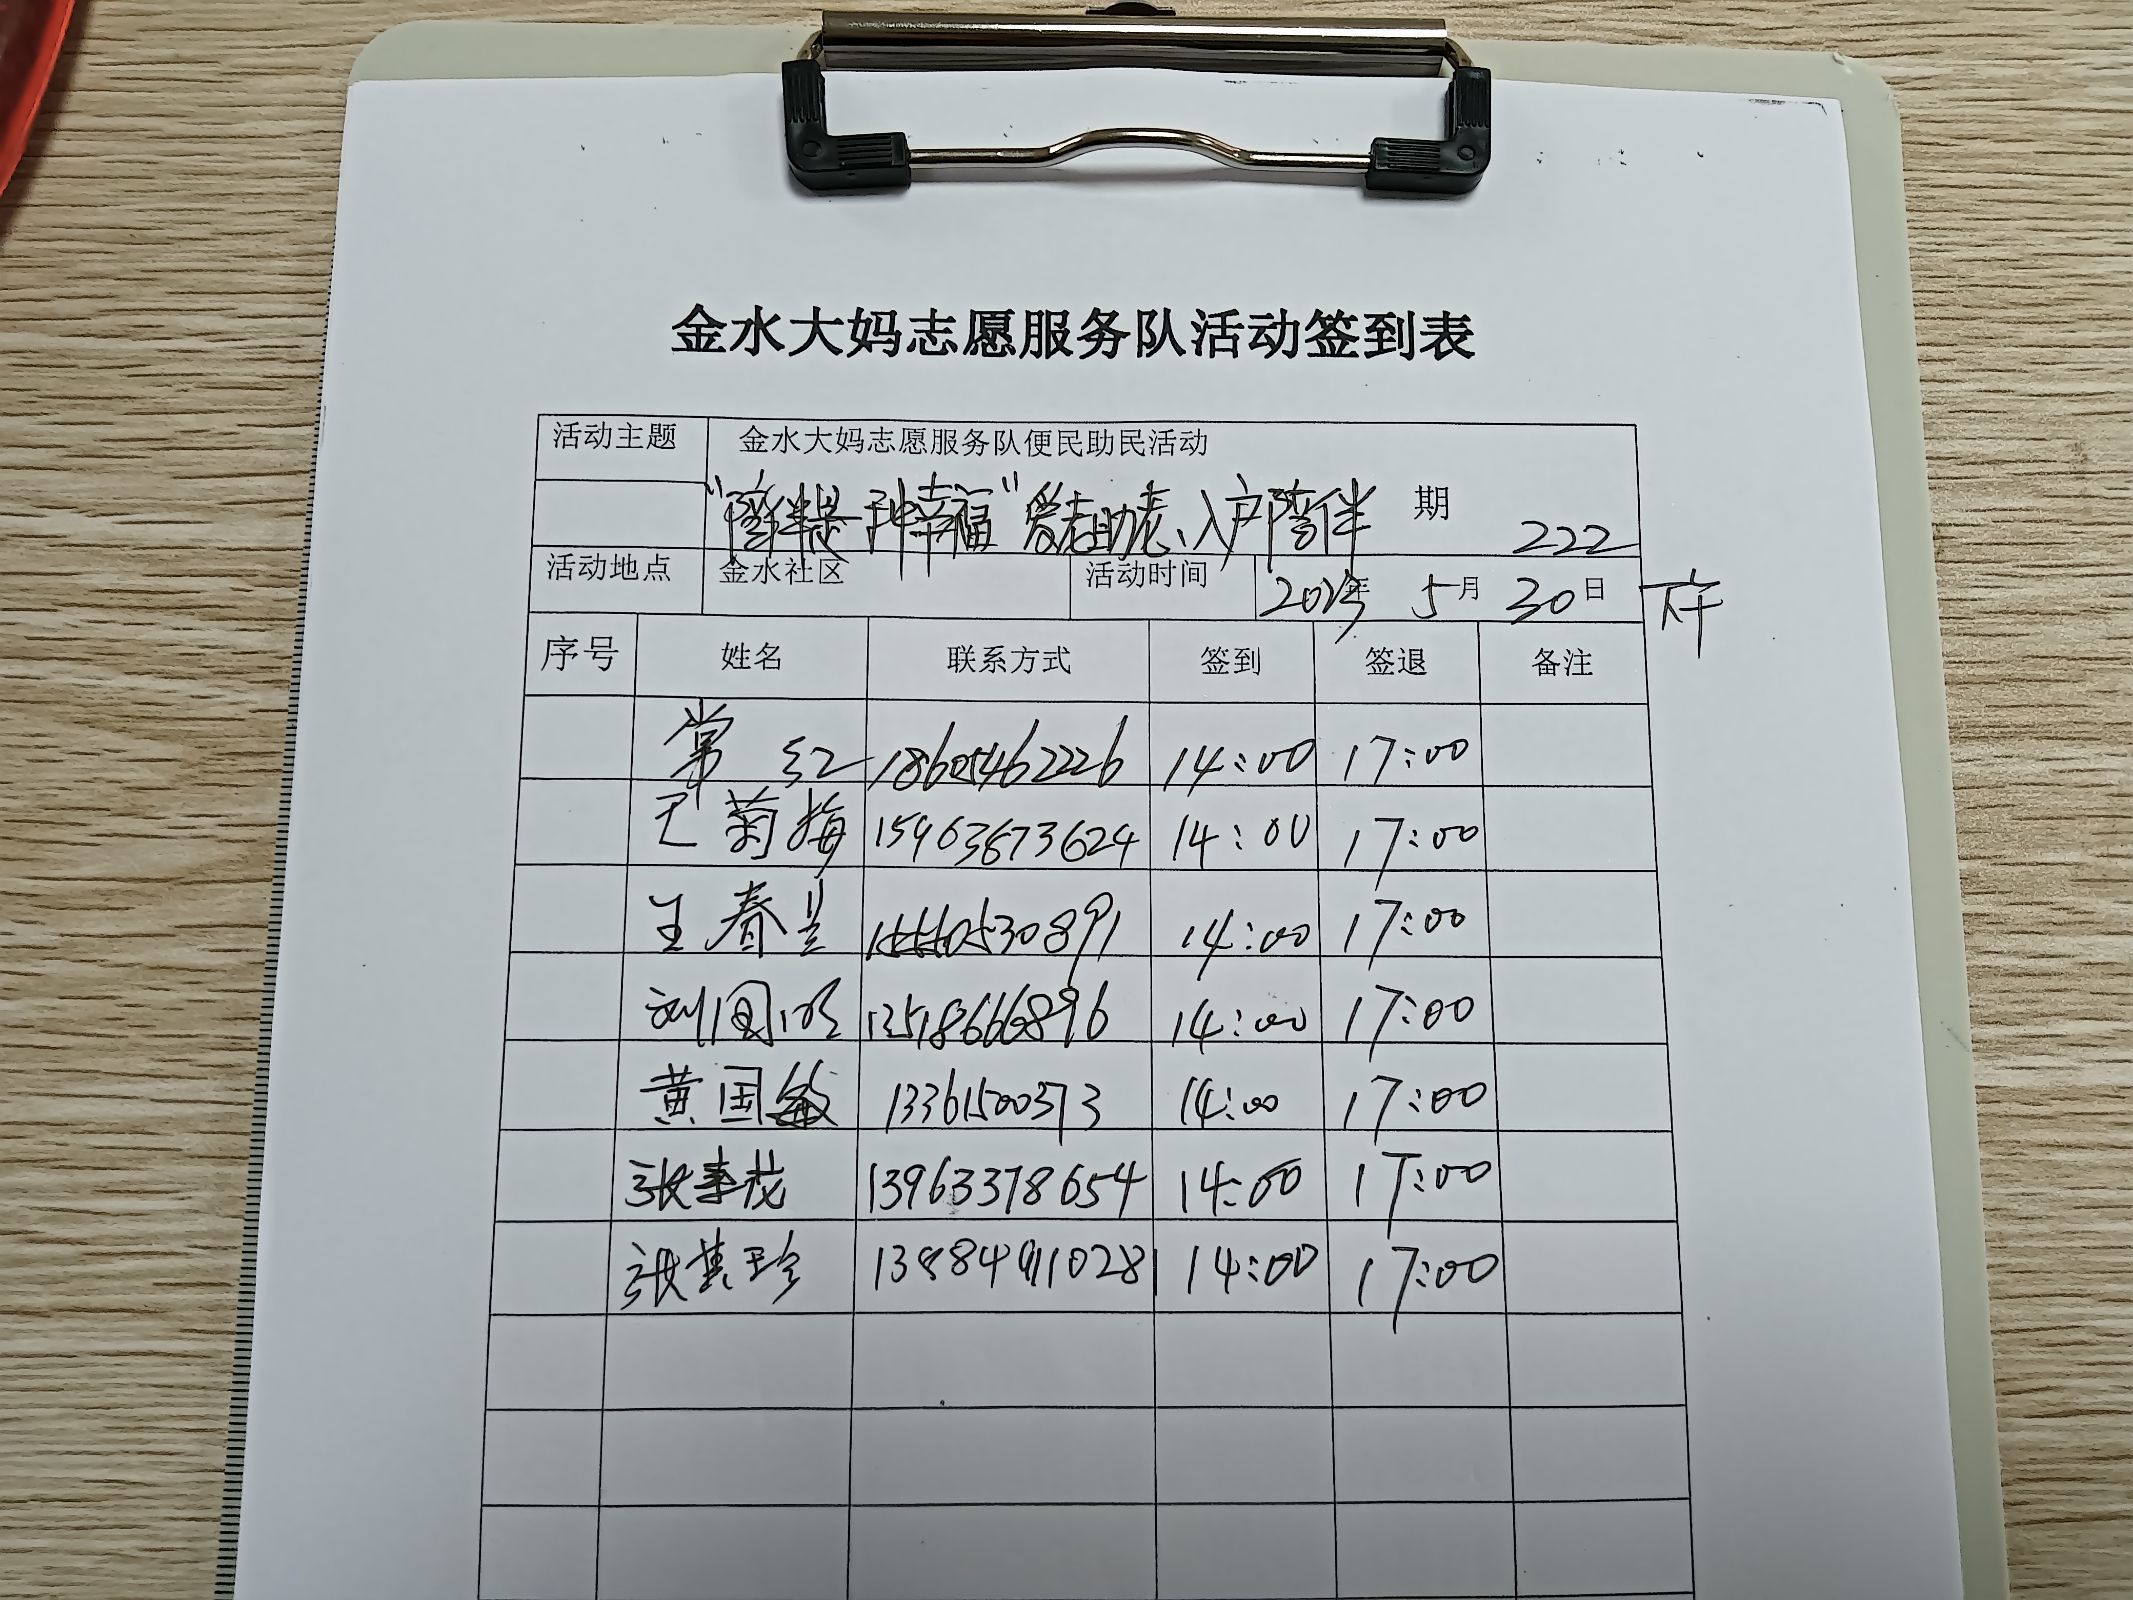 金水大妈志愿服务队活动签到表
活动主题 金水大妈志愿服务队便民助民活动
“陪伴是一种幸福”爱老助老、入户陪伴 期 222
活动地点 金水社区 活动时间 年 5月30日 下午
序号 姓名 联系方式 签到 签退 备注
常红 18605462226 14:00 17:00
菊梅 15963673624 14:00 17:00
王春兰 14:00 17:00
刘国 13518666896 14:00 17:00
黄国敏 13361500373 14:00 17:00
张秀花 13963378654 14:00 17:00
张其珍 14:00 17:00